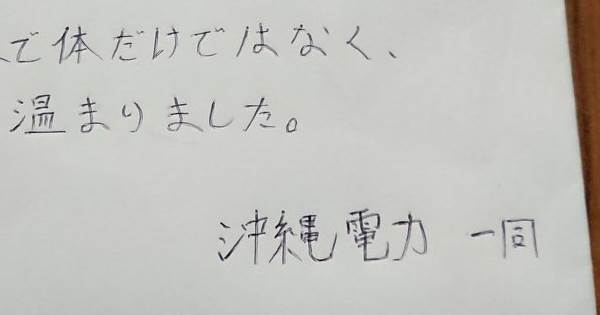 で体だけではなく、
温まりました。
沖縄電力 一同